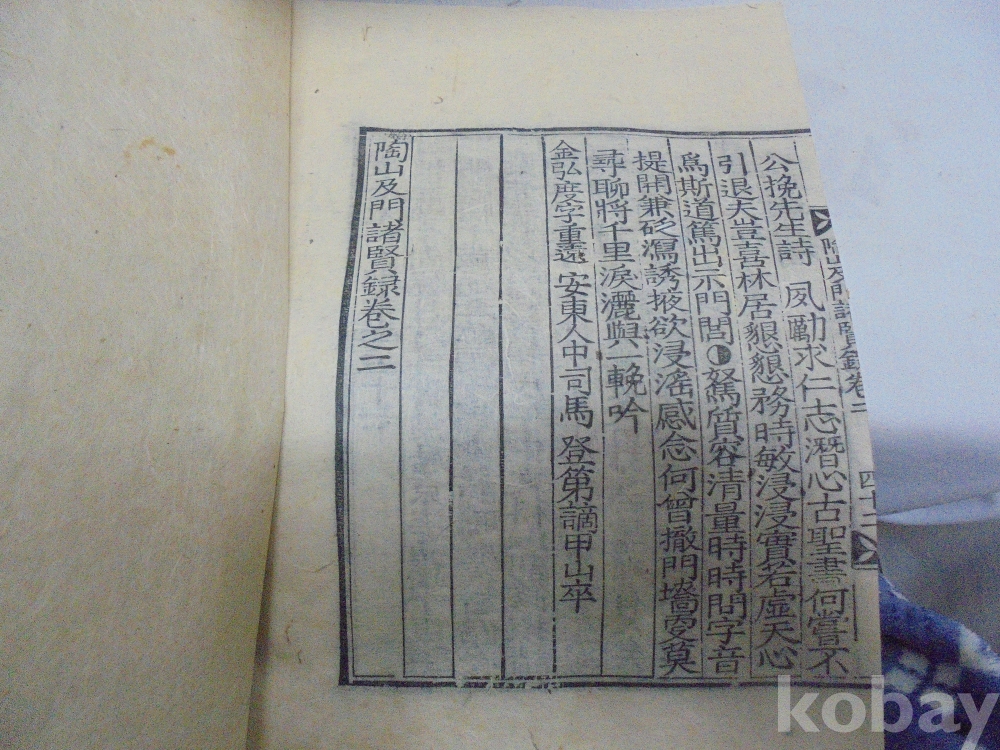 陶山及門諸賢錄卷二
四十二
公挽先生詩 夙勵求仁志潛心古聖書何嘗不
引退夫豈喜林居懇懇務時敏浸浸實若虛天心
爲斯道篤出示門閭 駑質容清量時時問字音
提開兼砭瀉誘掖欲浸滛感念何曾撤門墻寞
尋聊將千里淚灑與一輓吟
金弘度字重遠 安東人中司馬 登第謫甲山卒
陶山及門諸賢錄卷之二
kobay